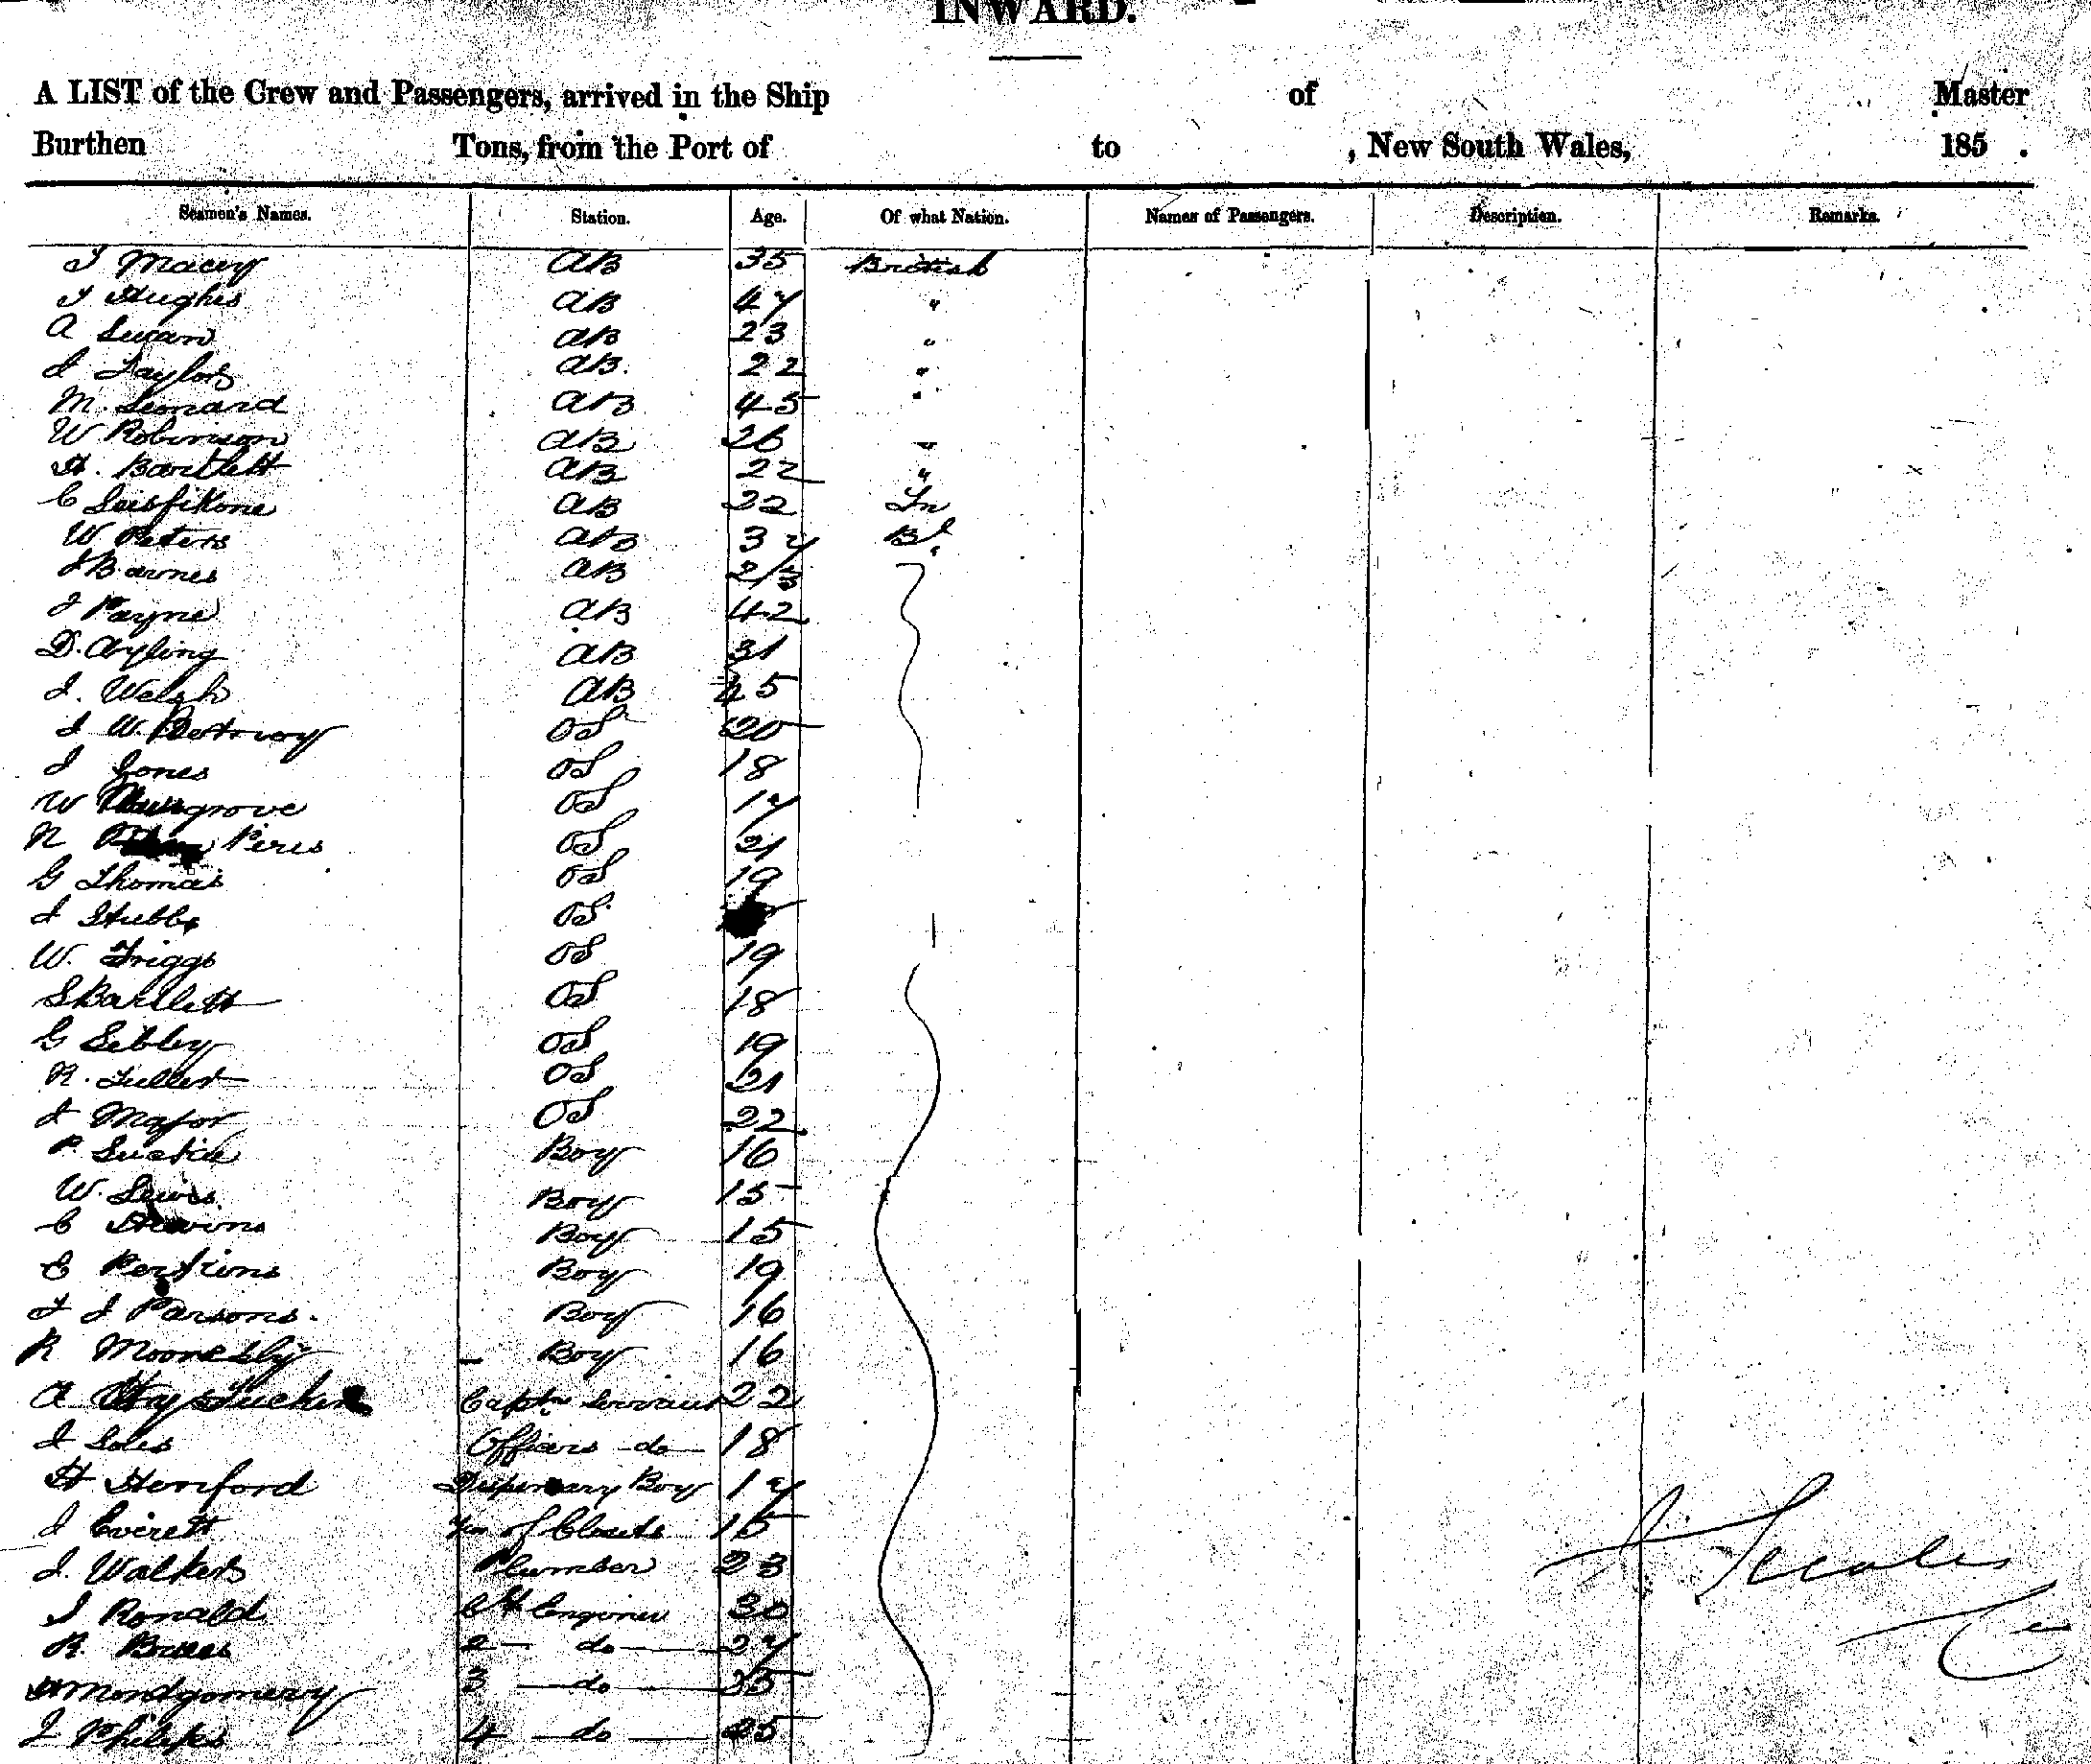 INWARD.
A LIST of the Crew and Passengers, arrived in the Ship of Master
Burthen Tons, from the Port of to , New South Wales, 185 .
Seamen's Names. Station. Age. Of what Nation. Names of Passengers. Description. Remarks.
J Macey AB 35 British
J Hughes AB 47 "
A Swan AB 23 "
J Taylor AB. 22 "
M. Leonard AB 45 "
W Robinson AB 26 "
H. Bartlett AB 22 "
C AB 22
W Peters AB 37 Bt.
J Barnes AB
J Payne AB 42
D. Ayling AB 31
J. Welsh AB 45
J W. OS 20
J Jones OS 18
W Musgrove OS 17
R Peres OS 21
G Thomas OS 19
J Stubbs OS
W. Triggs OS 19
S Bartlett OS 18
G Sibley OS 19
R. Fuller OS 21
J Major OS 22
P. Boy 16
W. Lewis Boy 15
C Stevens Boy 15
C Perkins Boy 19
F J Parsons. Boy 16
R Mooresby Boy 16
A Tucker Captn Servant 22
J Soles Officers do 18
H Heniford Dispensary Boy 17
J Everett of Closets 15
J. Walker Plumber 23
J Ronald Engineer 30
R. 2 do 27
Montgomery 3 do 35
J Philips 4 do 25